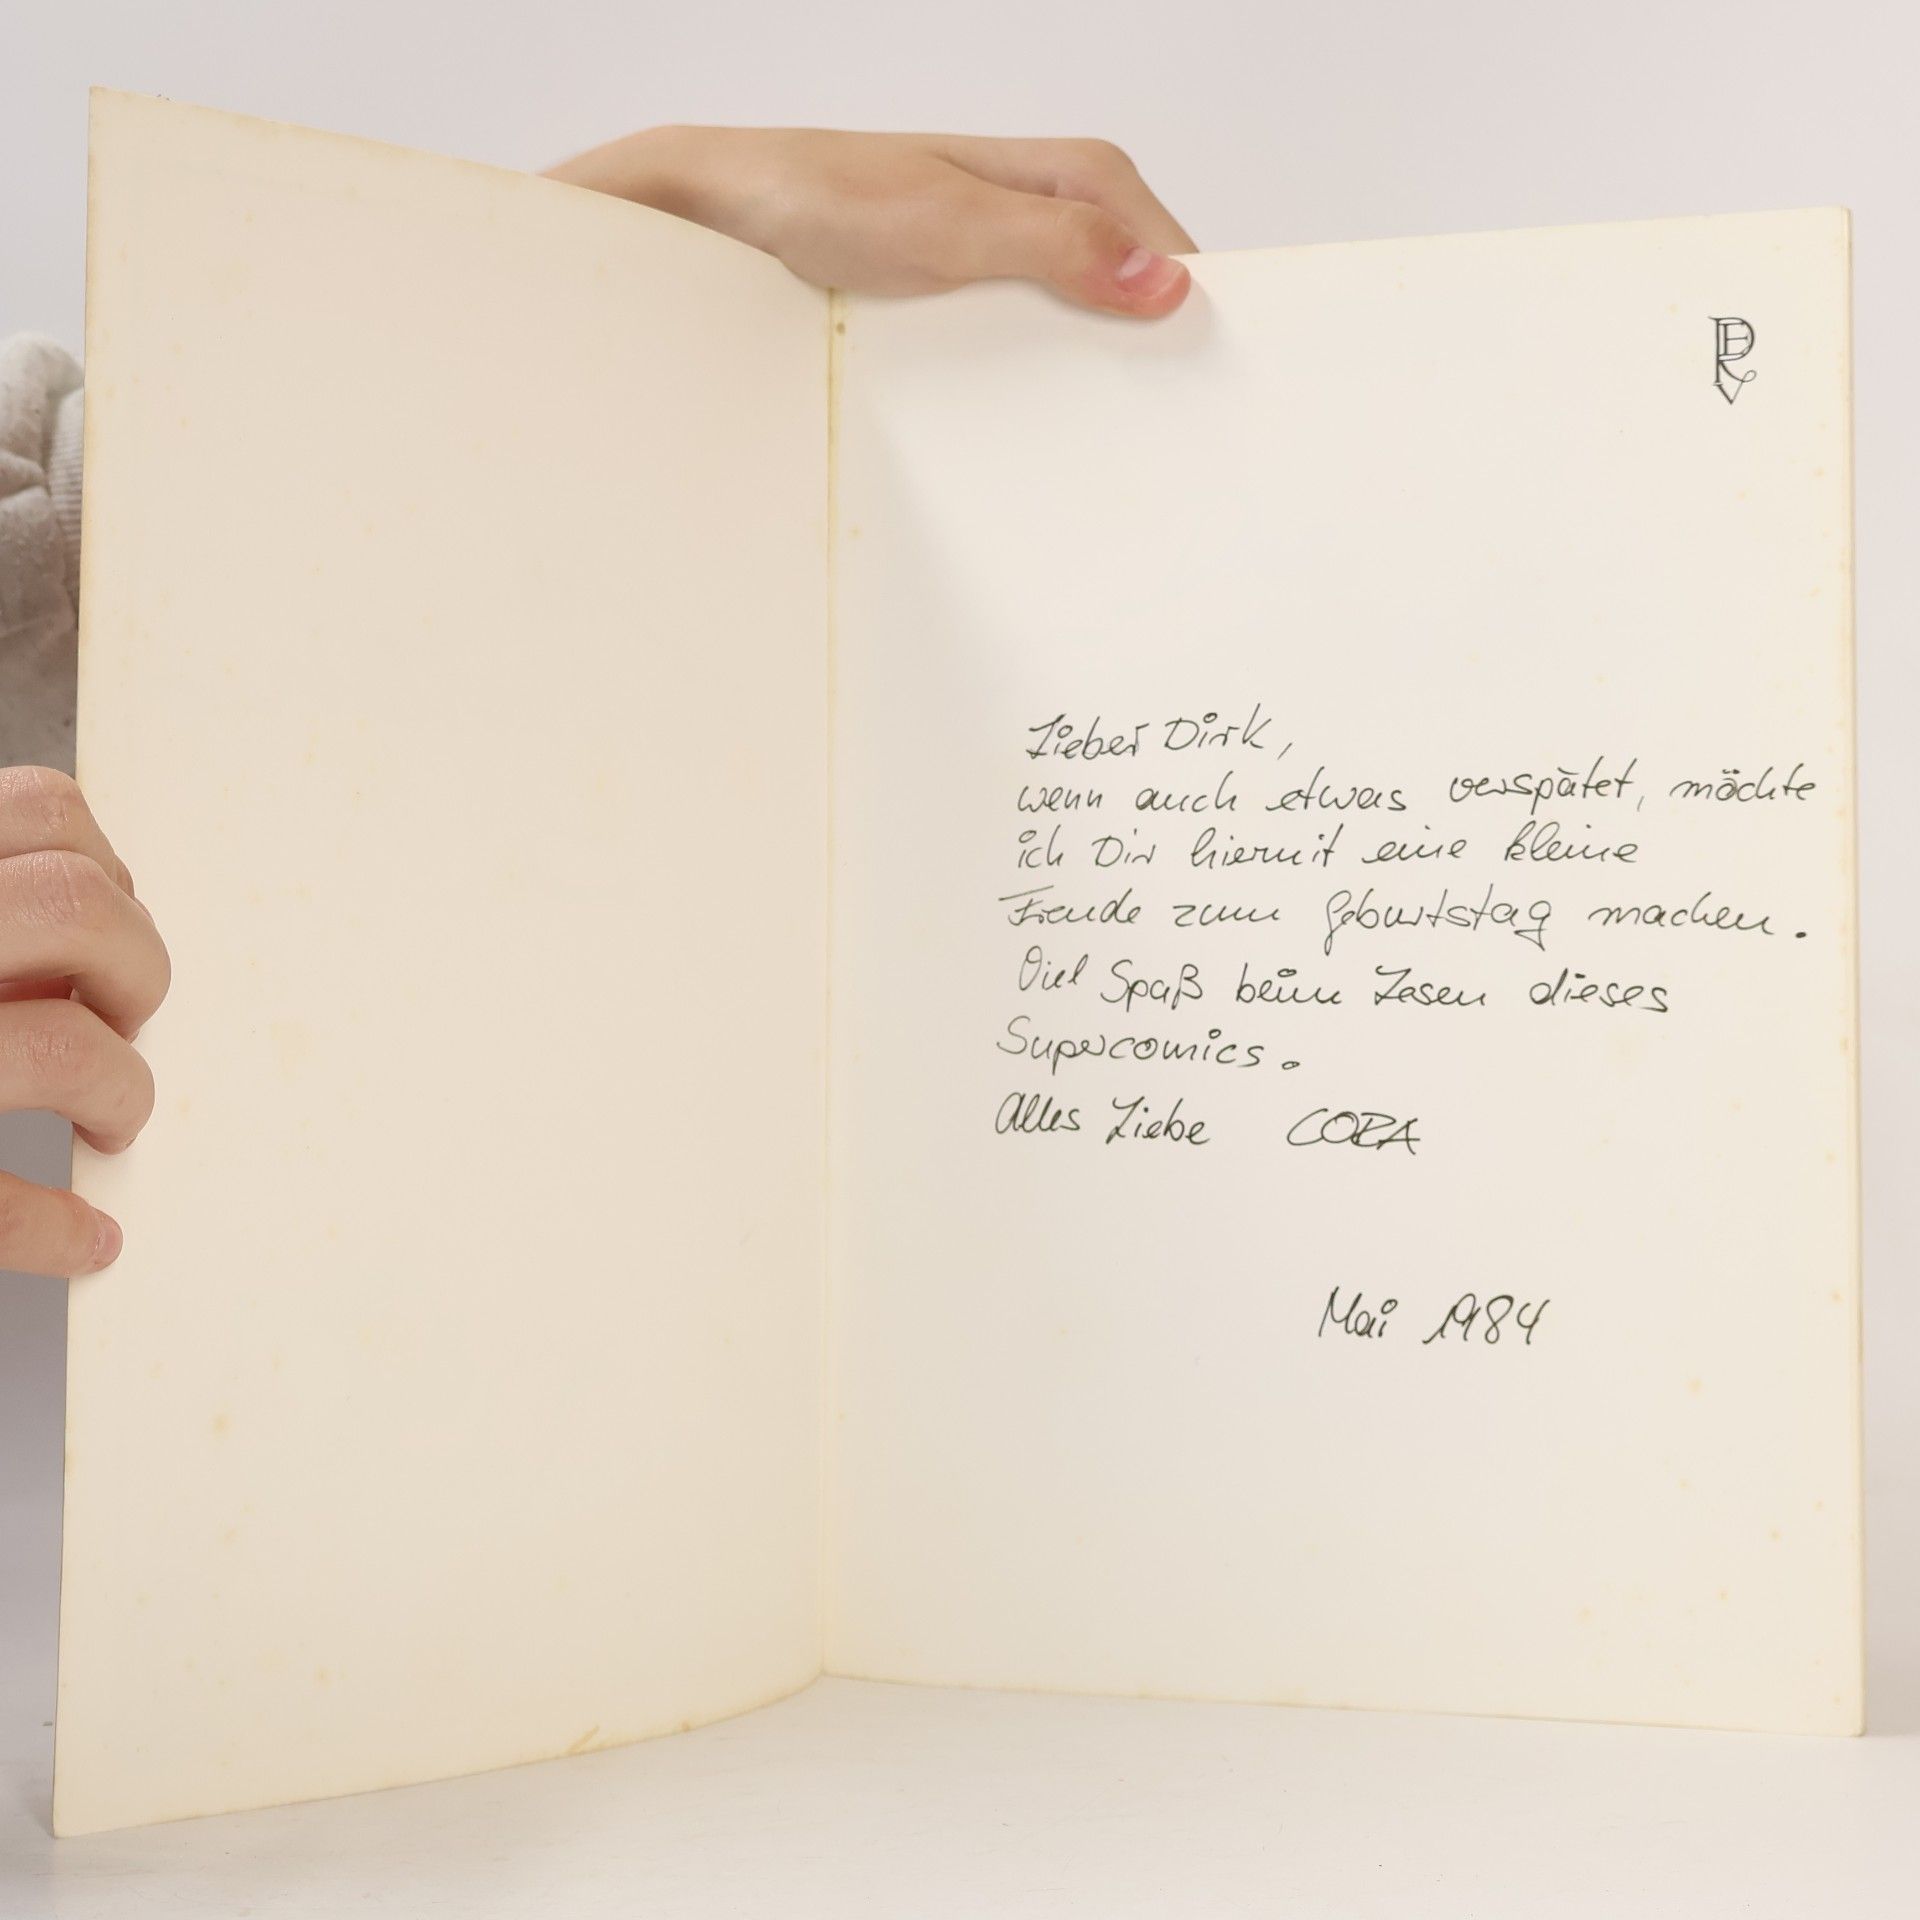 Lieber Dirk,
wenn auch etwas verspätet, möchte
ich Dir hiermit eine kleine
Freude zum Geburtstag machen.
Viel Spaß beim Lesen dieses
Supercomics.
Alles Liebe CORA
Mai 1984